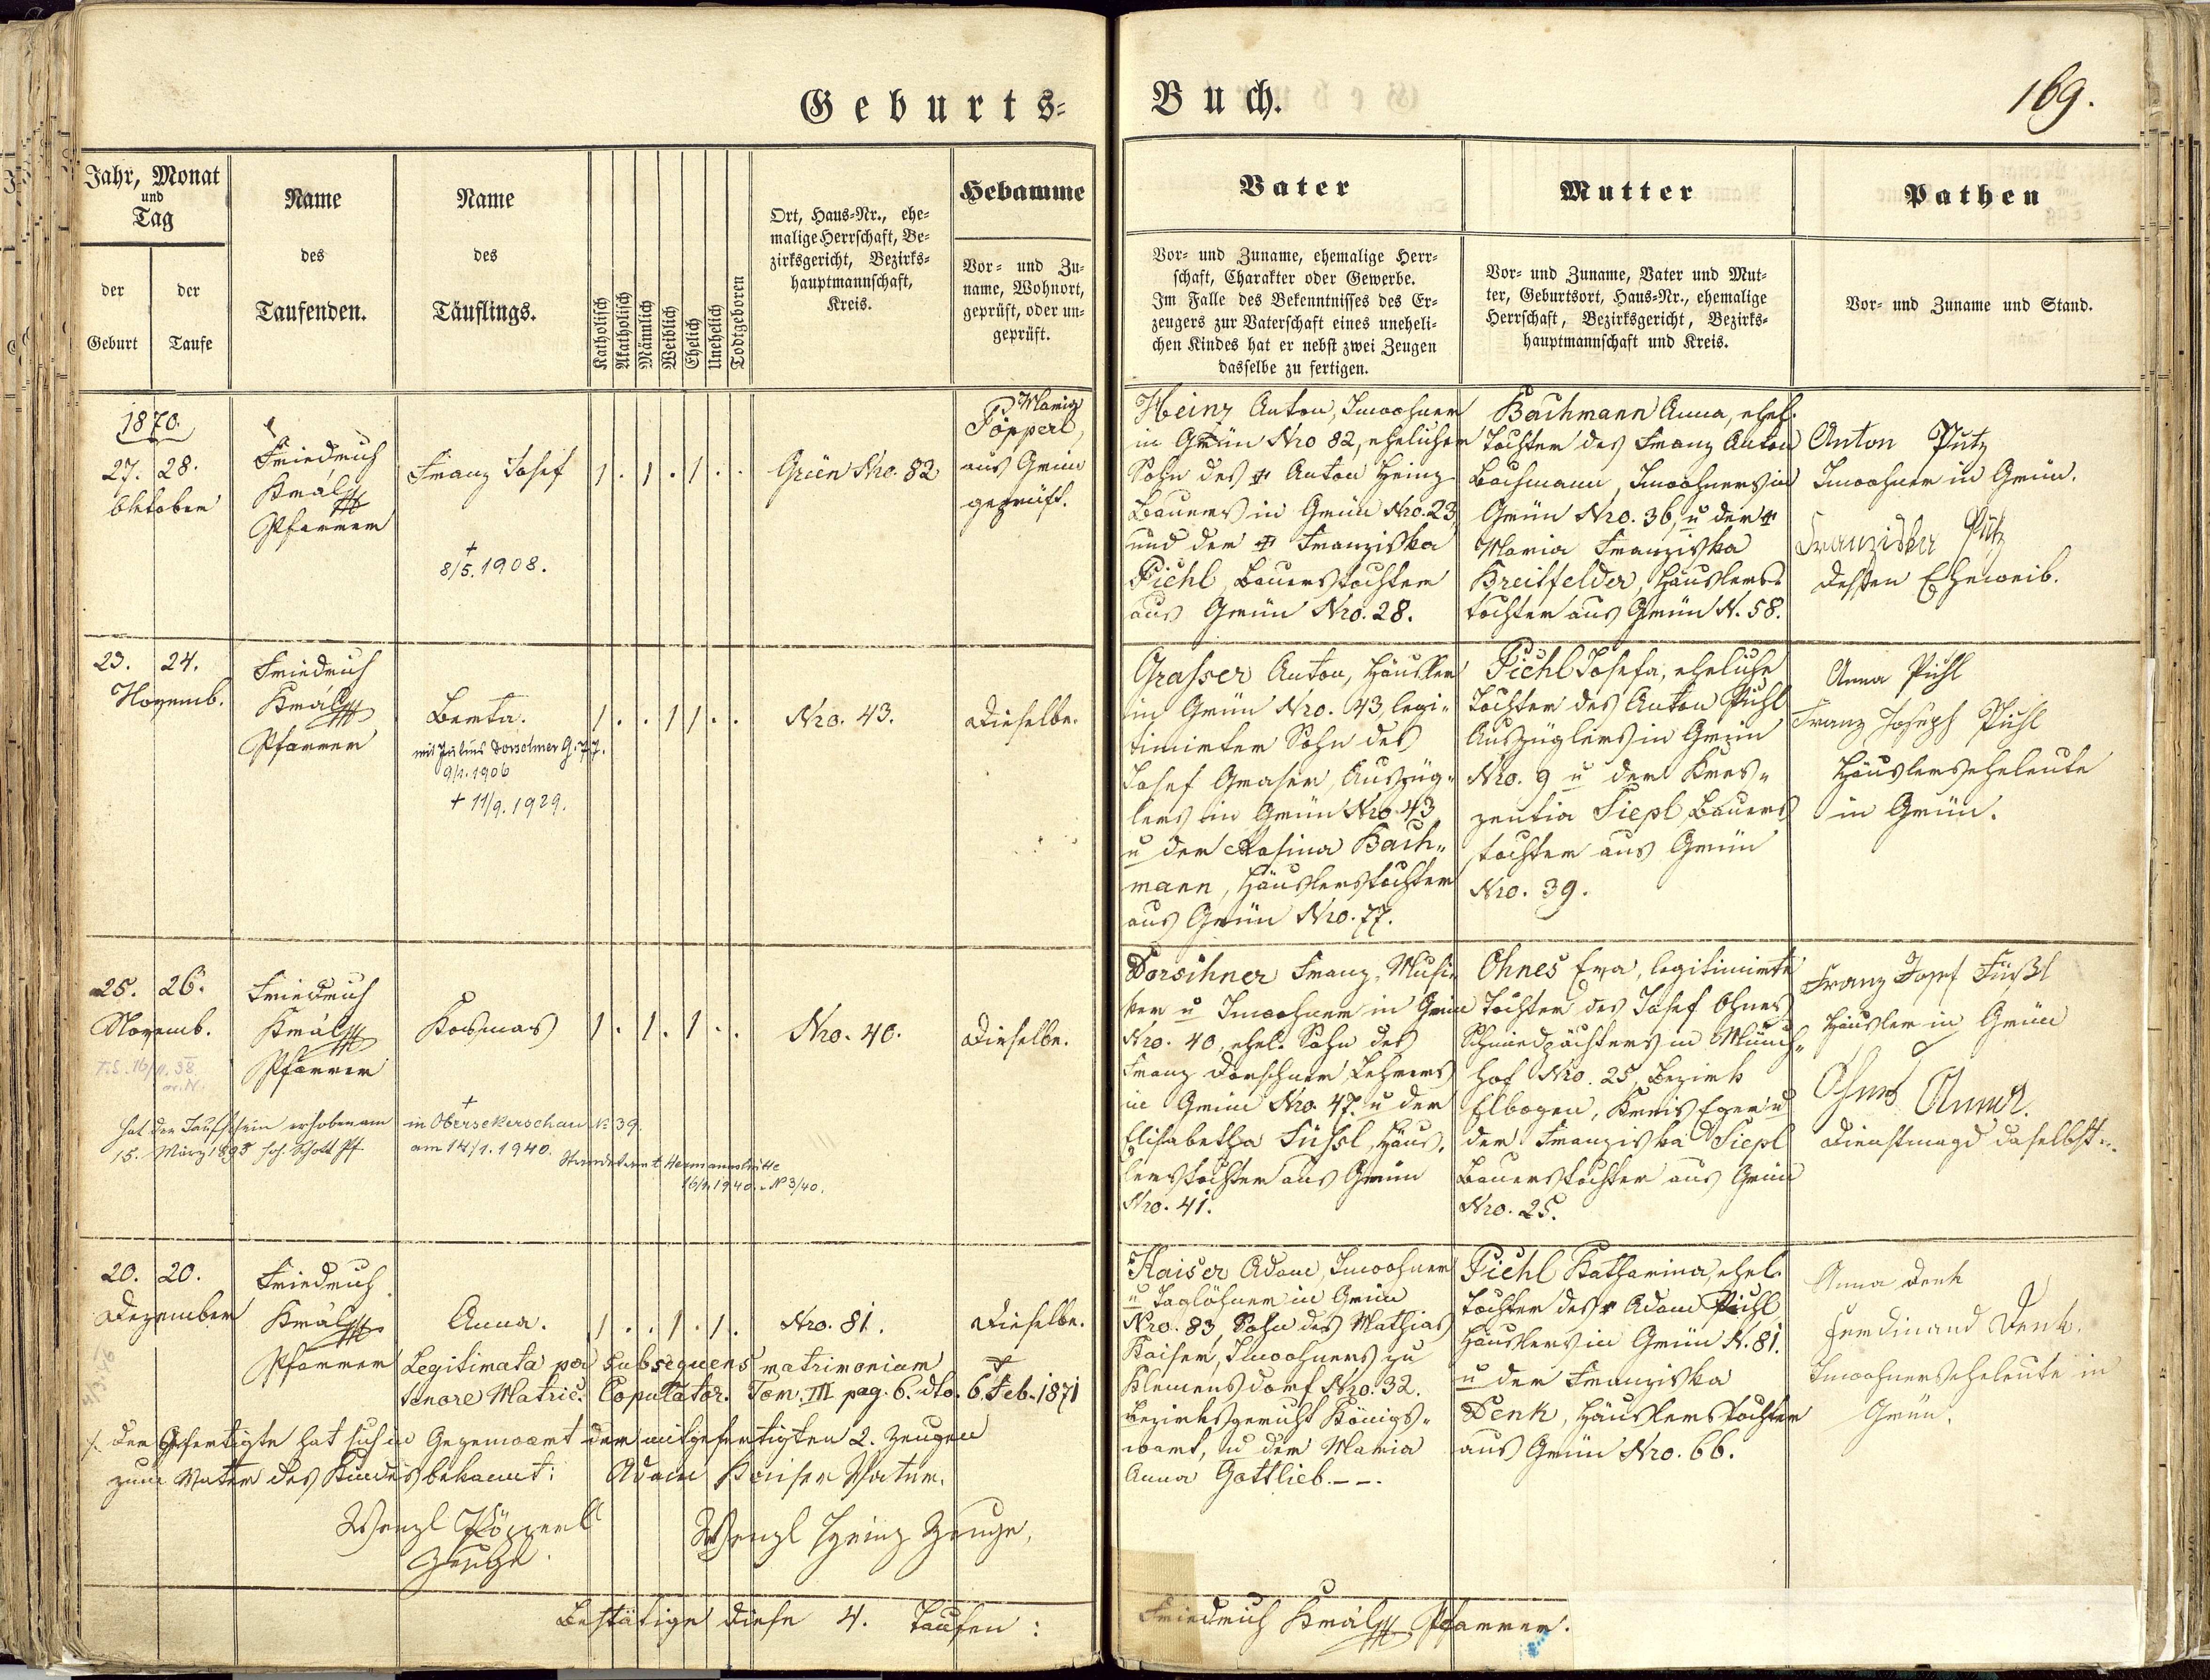 Geburts=
Buch.
169.
Jahr, Monat
und
Tag
der
Geburt
der
Taufe
Name
des
Taufenden.
Name
des
Täuflings.
Katholisch
Akatholisch
Männlich
Weiblich
Ehelich
Unehelich
Todtgeboren
Ort, Haus=Nr., ehe=
malige Herrschaft, Be=
zirksgericht, Bezirks=
hauptmannschaft,
Kreis.
Hebamme
Vor= und Zu=
name, Wohnort,
geprüft, oder un=
geprüft.
Vater
Vor= und Zuname, ehemalige Herr=
schaft, Charakter oder Gewerbe.
Im Falle des Bekenntnisses des Er=
zeugers zur Vaterschaft eines uneheli=
chen Kindes hat er nebst zwei Zeugen
dasselbe zu fertigen.
Mutter
Vor= und Zuname, Vater und Mut=
ter, Geburtsort, Haus=Nr., ehemalige
Herrschaft, Bezirksgericht, Bezirks=
hauptmannschaft und Kreis.
Pathen
Vor= und Zuname und Stand.
1870.
27. 28.
Oktober
Friedrich
Král
Pfarrer
Franz Josef
+
8/5. 1908.
1 . 1 . 1 . .
Grün Nro. 82
Maria
Pöpperl,
aus Grün
geprüft.
Heinz Anton, Inwohner
in Grün Nro 82, ehelicher
Sohn des + Anton Heinz
Bauers in Grün Nro. 23,
und der + Franziska
Pichl, Bauerstochter
aus Grün Nro. 28.
Bachmann Anna, ehel.
Tochter des Franz Anton
Bachmann, Inwohners in
Grün Nro. 36, u der +
Maria Franziska
Breitfelder, Häuslers
tochter aus Grün N. 58.
Anton Putz
Inwohner in Grün.
Franziska Putz
dessen Eheweib.
23. 24.
Novemb.
Friedrich
Král
Pfarrer
Berta.
mit Julius Dorschner G. 77.
9/1. 1906
+ 11/9. 1929.
1 . . 1 1 . .
Nro. 43.
Dieselbe.
Grasser Anton, Häusler
in Grün Nro. 43, legi=
timirter Sohn des
Josef Graser, Auszüg=
lers in Grün Nro. 43
u der Rosina Bach=
mann, Häuslerstochter
aus Grün Nro. 77.
Pichl Josefa, eheliche
Tochter des Anton Pichl
Auszüglers in Grün
Nro. 9 u der Kres=
zentia Siepl, Bauers
tochter aus Grün
Nro. 39.
Anna Pichl
Franz Joseph Pichl
Häuslerseheleute
in Grün.
25. 26.
Novemb.
Friedrich
Král
Pfarrer
Kosmas
1 . 1 . 1 . .
Nro. 40.
Dieselbe.
hat den Taufschein erhoben am
15. März 1895 Schott Pf.
+
in Obersekerschan No 39.
am 14/1. 1940.
Standesamt Hermannshütte
16/1. 1940. No 3/40.
Dorschner Franz, Musi=
ker u Inwohner in Grün
Nro. 40, ehel. Sohn des
Franz Dorschner, Lehrers
in Grün Nro. 47. u der
Elisabetha Füssl, Häus=
lerstochter aus Grün
Nro. 41.
Ohnes Eva, legitimirte
Tochter des Josef Ohnes
Schmiedpächters in Münch=
hof Nro. 25, Bezirk
Elbogen, Kreis Eger u
der Franziska Siepl
Bauerstochter aus Grün
Nro. 25.
Franz Josef Füßl
Häusler in Grün
Ohnes Anna.
Dienstmagd daselbst.
20. 20.
Dezember
Friedrich
Král
Pfarrer
Anna.
1 . . 1 . 1 .
Nro. 81.
Dieselbe.
Legitimata per subsequens matrimonium
tenore Matric. Copulator. Tom. III pag. 6. dto. 6. Feb. 1871
./. Der Gefertigte hat sich in Gegenwart der mitgefertigten 2. Zeugen
zum Vater des Kindes bekannt: Adam Kaiser Vater.
Wenzl Pöpperl
Zeuge.
Wenzl Heinz Zeuge,
Kaiser Adam, Inwohner
u Taglöhner in Grün
Nro. 83, Sohn des Mathias
Kaiser, Inwohners zu
Klemensdorf Nro. 32.
Bezirksgericht Königs=
wart, u der Maria
Anna Gottlieb. – – .
Pichl Katharina, ehel.
Tochter des + Adam Pichl,
Häuslers in Grün N. 81.
u der Franziska
Denk, Häuslerstochter
aus Grün Nro. 66.
Anna Denk
Ferdinand Denk.
Inwohnerseheleute in
Grün.
Bestätige diese 4. Taufen :
Friedrich Král Pfarrer.